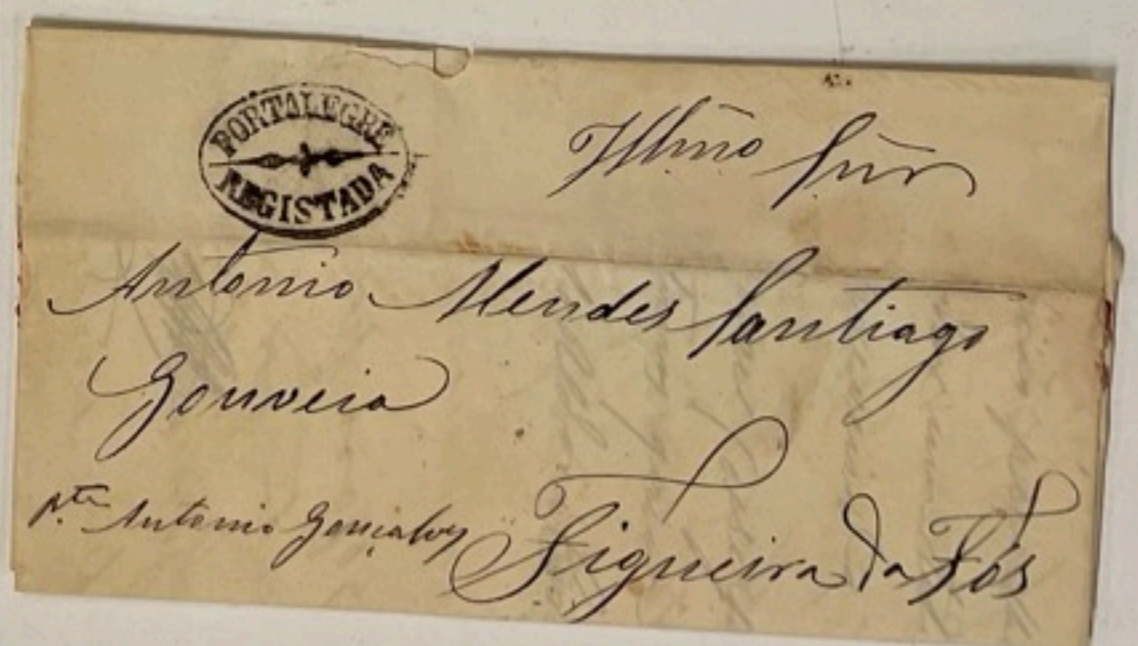 PORTALEGRE
REGISTADA
Illmo Snr
Antonio Mendes Santiago
Gouveia
pte Antonio Gonçalves
Figueira da Fós